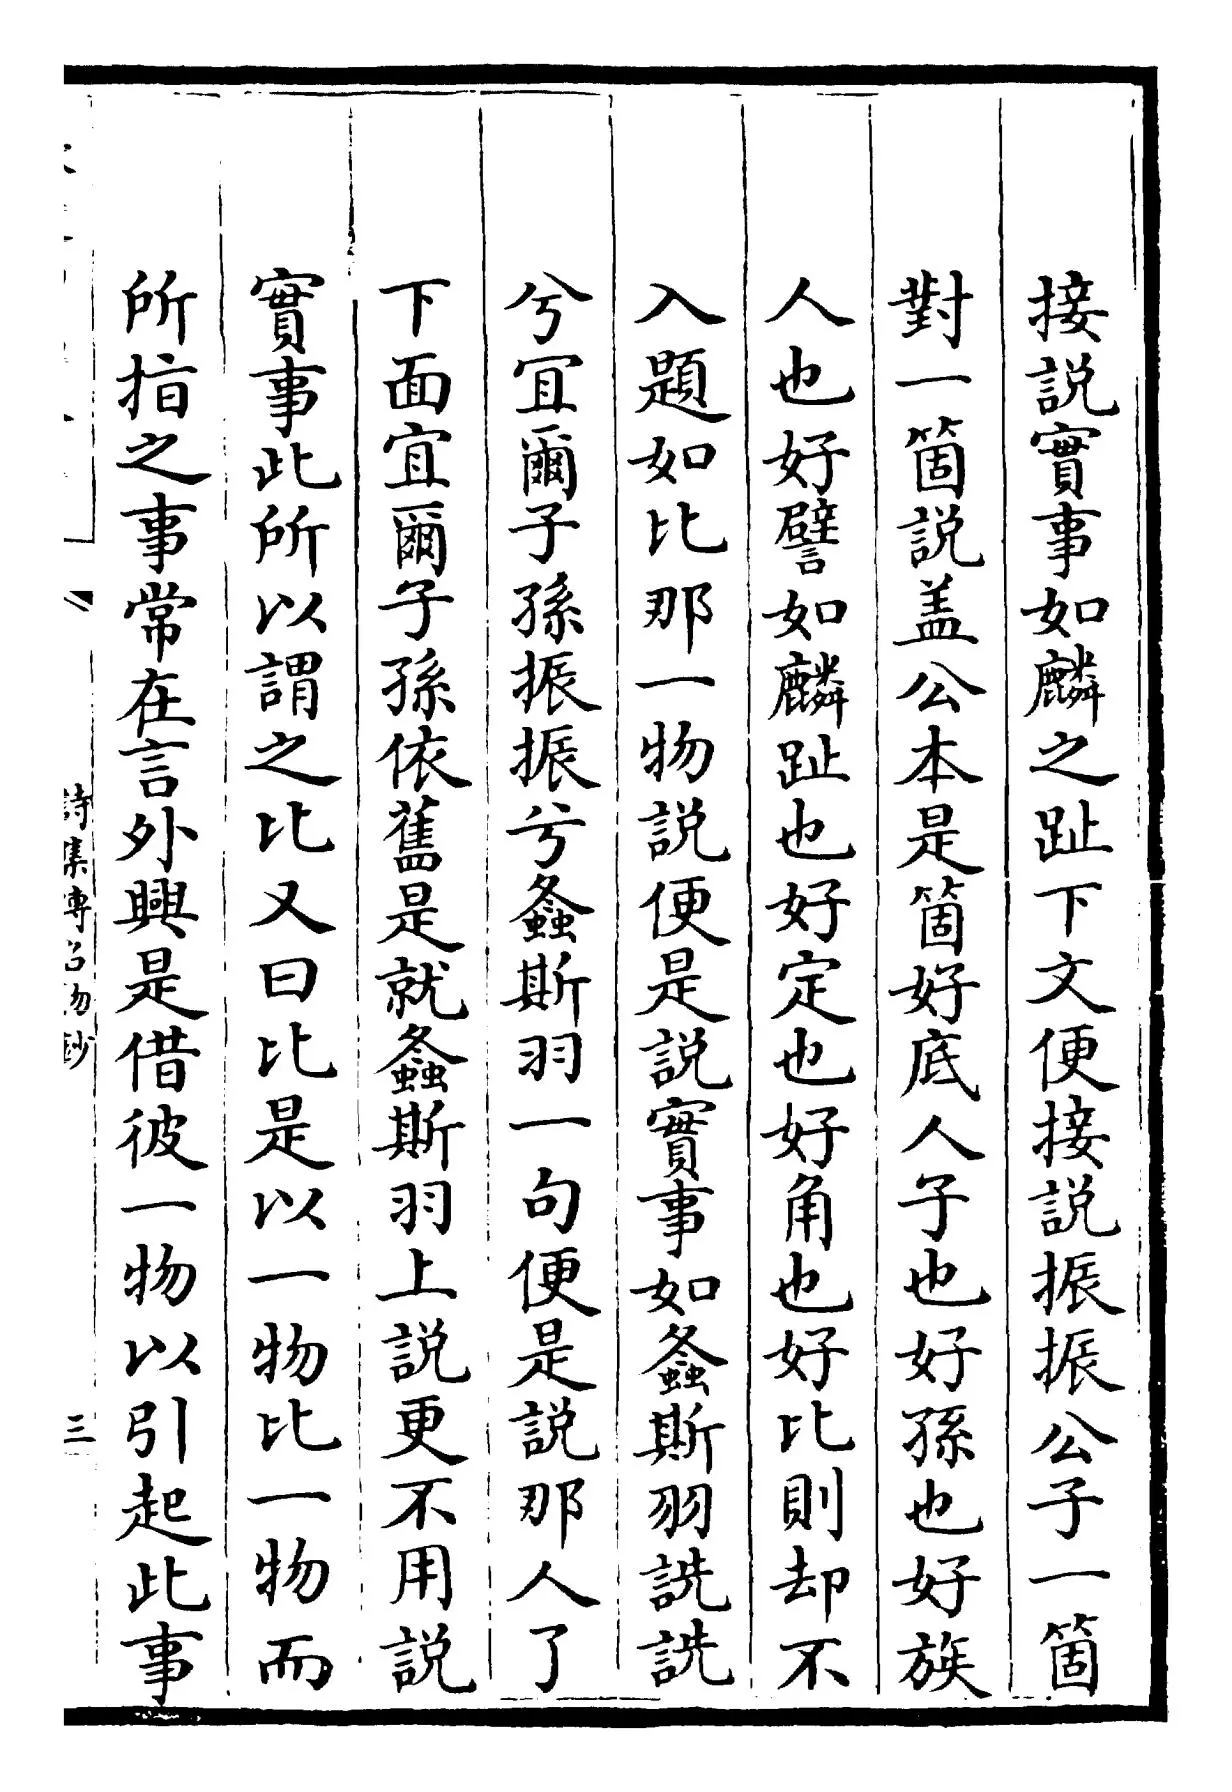 接説實事如麟之趾下文便接説振振公子一箇
對一箇説盖公本是箇好底人子也好孫也好族
人也好譬如麟趾也好定也好角也好比則却不
入題如比那一物説便是説實事如螽斯羽詵詵
兮宜爾子孫振振兮螽斯羽一句便是説那人了
下面宜爾子孫依舊是就螽斯羽上説更不用説
實事此所以謂之比又曰比是以一物比一物而
所指之事常在言外興是借彼一物以引起此事
詩集傳名物鈔
三